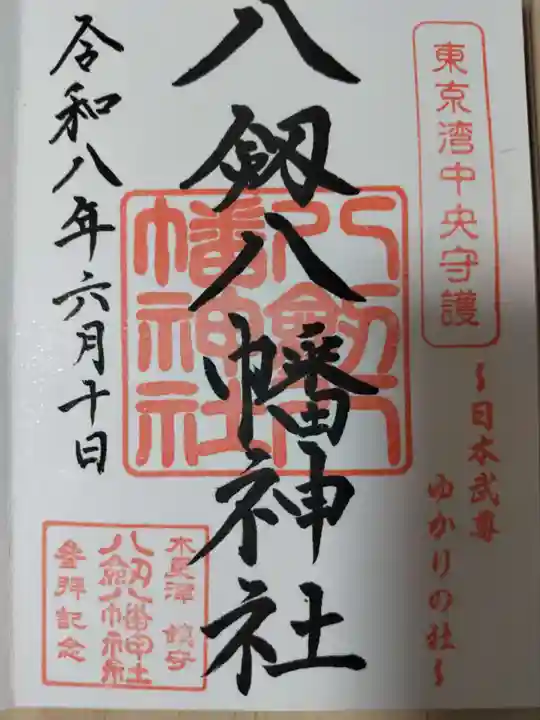 東京湾中央守護
～日本武尊
ゆかりの社～
八剱八幡神社
八剱八
幡神社
令和八年六月十日
木更津 鎮守
八剱八幡神社
参拝記念